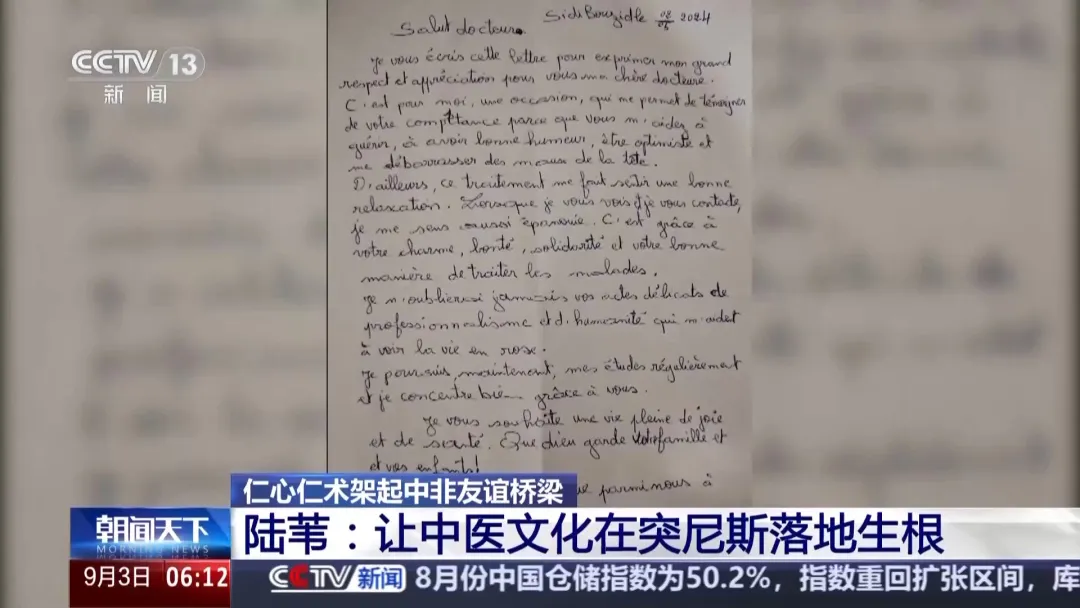 CCTV 13
新闻
Sidi Bouzid le 08/06 2024
Salut docteur.
Je vous écris cette lettre pour exprimer mon grand
respect et appréciation pour vous ma chère docteure.
C'est pour moi, une occasion, qui me permet de témoigner
de votre compttance parce que vous m'aidez à
guérir, à avoir bonne humeur, être optimiste et
me débarrasser des maux de la tête.
D'ailleurs, ce traitement me fait sentir une bonne
relaxation. Lorsque je vous vois je vous contacte,
je me sens aussi épanouie. C'est grâce à
votre charme, bonté, solidarité et votre bonne
manière de traiter les malades.
Je n'oublierai jamais vos actes délicats de
professionnalisme et d'humanité qui m'aident
à voir la vie en rose.
Je poursuis, maintenant, mes études régulièrement
et je concentre bien grâce à vous.
Je vous souhaite une vie pleine de joie
et de santé. Que dieu garde votre famille et
et vos enfants!
parmi nous à
仁心仁术架起中非友谊桥梁
朝闻天下
MORNING NEWS
陆苇：让中医文化在突尼斯落地生根
9月3日 06:12
CCTV新闻 8月份中国仓储指数为50.2%，指数重回扩张区间，库